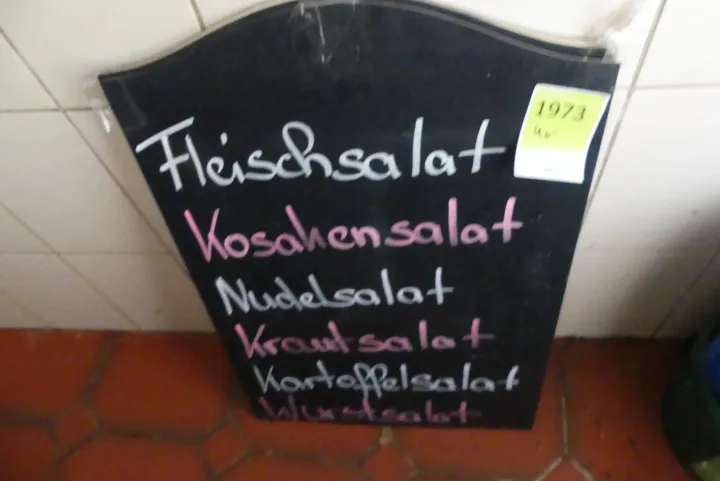 Fleischsalat
1973
Kosakensalat
Nudelsalat
Krautsalat
Kartoffelsalat
Wurstsalat